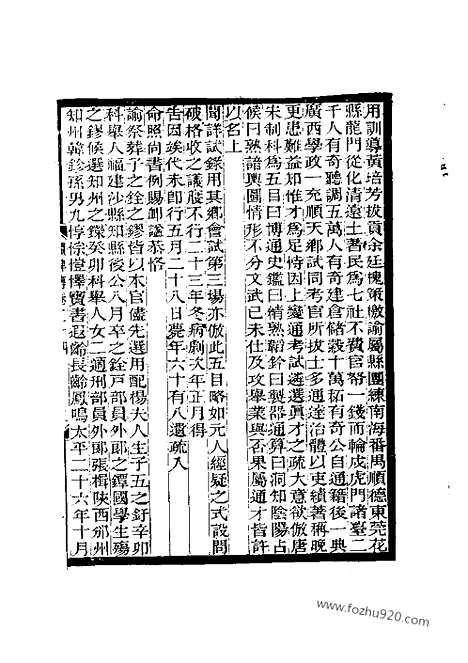 用訓導黃培芳拔貢余廷槐策繳諭屬縣團練南海番禺順德東莞花
縣龍門從化清遠土著民為七社不費官帑一錢而輪戍虎門諸臺二
千人有奇聽調五萬人有奇建倉儲穀十萬石有奇公自通籍後一典
廣西學政一充順天鄉試同考官所拔士多通達治體以吏績著稱晚
更患難益知惟才為足恃因上變通考試遴選真才之疏大意欲倣唐
宋制科為五目曰博通史鑑曰精熟韜鈐曰製器通算曰洞知陰陽占
候曰熟諳輿圖情形不分文武已未仕及攻舉業與否果屬通才皆許
以名上
聞詳試錄用其鄉會試第三場亦倣此五目略如元人經疑之式設問
破格收之議股不行二十三年冬病劇次年正月得
告因疾代未卽行五月二十八日薨年六十有八遺疏入
命照尚書例賜卹諡恭恪
諭祭葬子之銓之鏐皆以本官儘先選用配楊夫人生子五之釪辛卯
科舉人福建沙縣知縣後公八月卒之銓戶部員外郎之鐔國學生殤
之鏐候選知州之鏷癸卯科舉人女二適刑部員外郎張楫陝西邠州
知州韓鉁孫男九惇悰愷懌寶書遐齡長齡鳳鳴太平二十六年十月
www.fozhu920.com